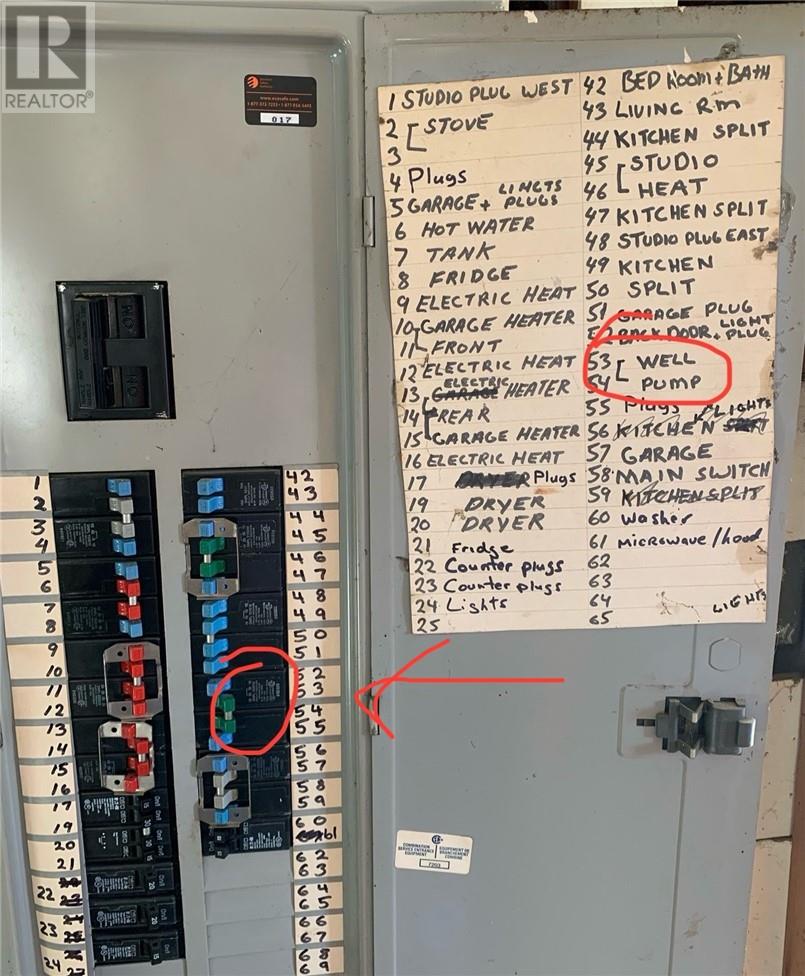 R
REALTOR®
017
1 STUDIO PLUG WEST
2 STOVE
3
4 Plugs
5 GARAGE + LIHGTS PLUGS
6 HOT WATER
7 TANK
8 FRIDGE
9 ELECTRIC HEAT
10 GARAGE HEATER
11 FRONT
12 ELECTRIC HEAT
13 ELECTRIC HEATER
14 REAR
15 GARAGE HEATER
16 ELECTRIC HEAT
17 DRYER Plugs
19 DRYER
20 DRYER
21 Fridge
22 Counter plugs
23 Counter plugs
24 Lights
25
42 BED ROOM + BATH
43 LIVING Rm
44 KITCHEN SPLIT
45 STUDIO
46 HEAT
47 KITCHEN SPLIT
48 STUDIO PLUG EAST
49 KITCHEN
50 SPLIT
51 GARAGE PLUG
52 BACK DOOR LIGHT + PLUG
53 WELL
54 PUMP
55 Plugs
56 KITCHEN LIGHTS
57 GARAGE
58 MAIN SWITCH
59 KITCHEN SPLIT
60 Washer
61 Microwave/hood
62
63
64
65
LIGHTS
1
2
3
4
5
6
7
8
9
10
11
12
13
14
15
16
17
19
20
21
22
23
24
42
43
44
45
46
47
48
49
50
51
52
53
54
55
56
57
58
59
60
61
62
63
64
65
66
67
68
69
COMBINATION SERVICE ENTRANCE EQUIPMENT
EQUIPEMENT DE BRANCHEMENT COMBINE
7203